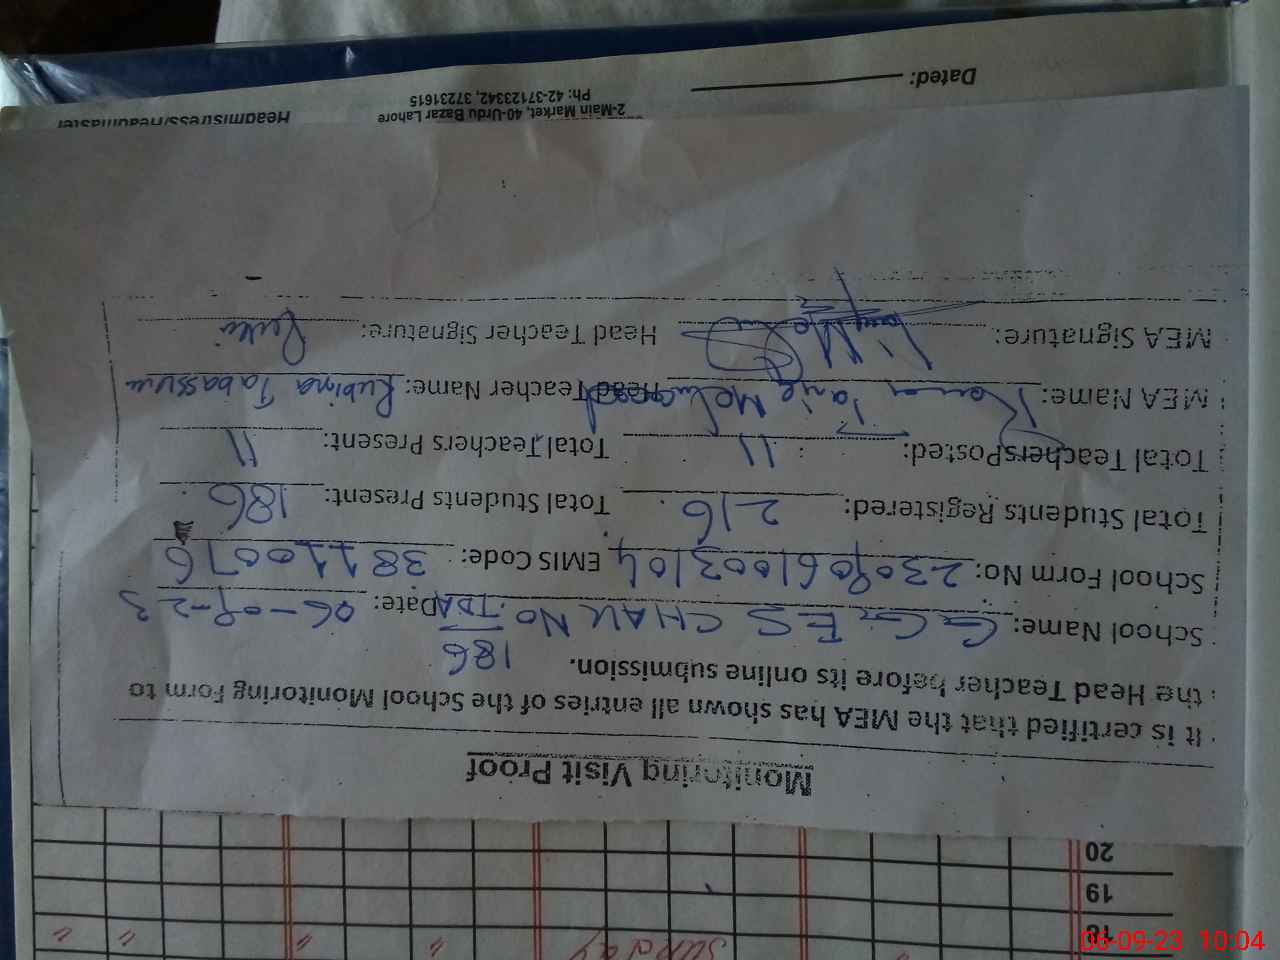 Monitoring Visit Proof
It is certified that the MEA has shown all entries of the School Monitoring Form to
the Head Teacher before its online submission.
School Name: GGES CHAK NO. 186/TDA Date: 06-09-23
School Form No: 2309061003104 EMIS Code: 381110076
Total Students Registered: 216 Total Students Present: 186
Total Teachers Posted: 11 Total Teachers Present: 11
MEA Name: Head Teacher Name: Rubina Tabassum
MEA Signature: Head Teacher Signature:
2-Main Market, 40-Urdu Bazar Lahore
Ph: 42-37123342, 37231615
Headmistress/Headmaster
Dated:
18
19
20
Sunday
06-09-23 10:04